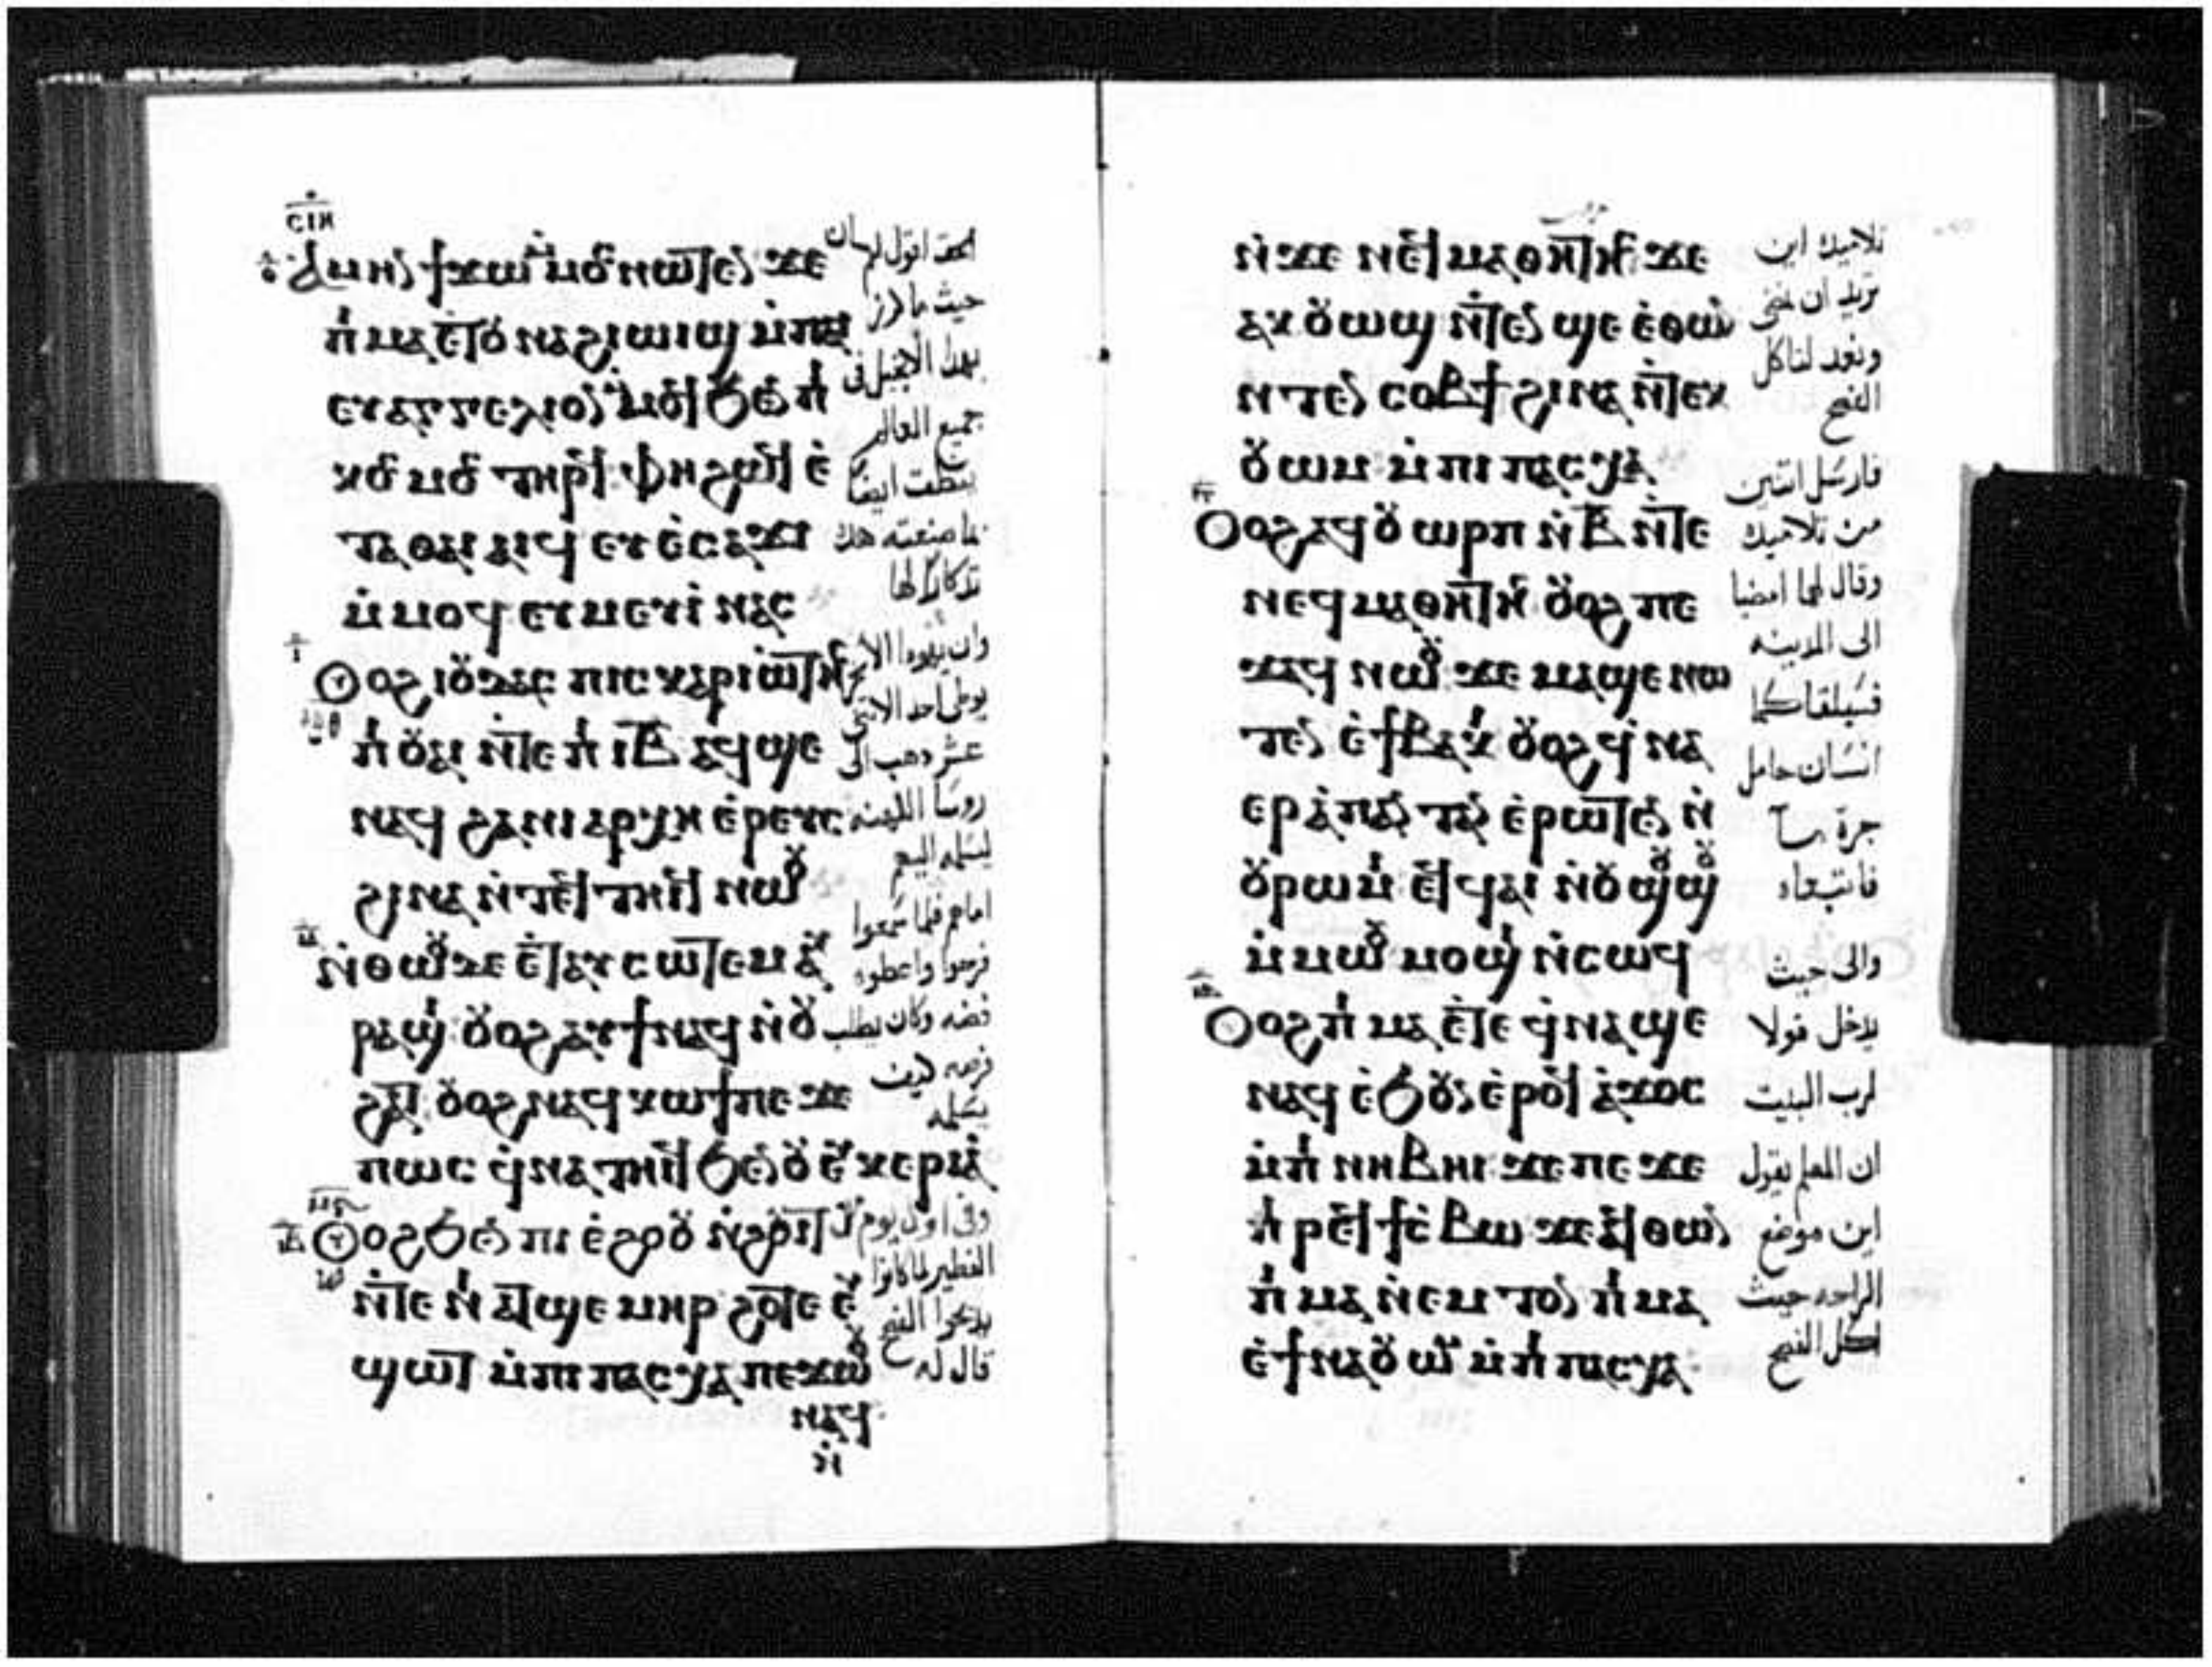 ⲥⲓⲏ
ⲁⲙⲏⲛ ϯϫⲱ ⲙⲙⲟⲥ ⲛⲱⲧⲉⲛ ϫⲉ
ⲡⲓⲙⲁ ⲉⲧⲟⲩⲛⲁϩⲓⲱⲓϣ ⲙⲡⲁⲓ
ⲉⲩⲁⲅⲅⲉⲗⲓⲟⲛ ⲙⲙⲟϥ ϧⲉⲛ ⲡⲓ
ⲕⲟⲥⲙⲟⲥ ⲧⲏⲣϥ ⲫⲏ ϩⲱϥ ⲉ
ⲧⲁ ⲑⲁⲓ ⲁⲓϥ ⲉⲩⲉⲥⲁϫⲓ
ⲙⲙⲟϥ ⲉⲩⲙⲉⲩⲓ ⲛⲁⲥ
ⲟⲩⲟϩ ⲓⲟⲩⲇⲁⲥ ⲡⲓⲥⲕⲁⲣⲓⲱⲧⲏⲥ
ⲡⲓⲟⲩⲁⲓ ⲛⲧⲉ ⲡⲓⲓⲃ ⲁϥϣⲉ
ⲛⲁϥ ϩⲁ ⲛⲓⲁⲣⲭⲏⲉⲣⲉⲩⲥ
ϩⲓⲛⲁ ⲛⲧⲉϥⲧⲏⲓϥ ⲛⲱⲟⲩ
ⲛⲑⲱⲟⲩ ⲇⲉ ⲉⲧⲁⲩⲥⲱⲧⲉⲙ ⲁⲩ
ⲣⲁϣⲓ ⲟⲩⲟϩ ⲁⲩϯ ⲛⲁϥ ⲛⲟⲩ
ϩⲁⲧ ⲟⲩⲟϩ ⲛⲁϥⲕⲱϯ ⲡⲉ ϫⲉ
ⲡⲱⲥ ϥⲛⲁⲧⲏⲓϥ ϧⲉⲛ ⲟⲩⲉⲩⲕⲉⲣⲓⲁ
ⲟⲩⲟϩ ϧⲉⲛ ⲡⲓⲉϩⲟⲟⲩ ⲛϩⲟⲩⲓⲧ
ⲛⲧⲉ ⲛⲓⲁⲧϣⲉⲙⲏⲣ ϩⲟⲧⲉ ⲉⲩ
ϣⲱⲧ ⲙⲡⲓⲡⲁⲥⲭⲁ ⲡⲉϫⲱⲟⲩ
ⲛⲁϥ
ⲛ
الحق اقول لكم ان
حيث ما كرز
بهذا الانجيل فى
جميع العالم
ينطق ايضا
بما صنعته هذه
تذكارا لها
يوطى احد الاثنى
عشر ذهب الى
روسا الكهنه
ليسلمه اليهم
امام فلما سمعوا
فرحوا واعطوه
فضه وكان يطلب
فرصه كيف
يسلمه
وفى اول يوم من
الفطير لما كانوا
يذبحوا الفصح
قال له
ⲛϫⲉ ⲛⲉϥⲙⲁⲑⲏⲧⲏⲥ ϫⲉ
ⲁⲕⲟⲩⲱϣ ⲛⲧⲉⲛϣⲉ ⲉⲑⲱⲛ
ⲛⲧⲉⲛⲥⲟⲃϯ ϩⲓⲛⲁ ⲛⲧⲉⲕ
ⲟⲩⲱⲙ ⲙⲡⲓⲡⲁⲥⲭⲁ
ⲟⲩⲟϩ ⲁϥⲟⲩⲱⲣⲡ ⲛⲃ ⲛⲧⲉ
ⲛⲉϥⲙⲁⲑⲏⲧⲏⲥ ⲟⲩⲟϩ ⲡⲉ
ϫⲁϥ ⲛⲱⲟⲩ ϫⲉ ⲙⲁϣⲉⲛⲱ
ⲧⲉⲛ ⲉϯⲃⲁⲕⲓ ⲟⲩⲟϩ ϥⲛⲁ
ⲉⲣⲁⲡⲁⲛⲧⲁⲛ ⲉⲣⲱⲧⲉⲛ ⲛϫⲉ
ⲟⲩⲣⲱⲙⲓ ⲉϥϥⲁⲓ ⲛⲟⲩϣⲟϣⲟⲩ
ⲙⲙⲱⲟⲩ ⲙⲟϣⲓ ⲛⲥⲱϥ
ⲟⲩⲟϩ ⲡⲓⲙⲁ ⲉⲧⲉϥⲛⲁϣⲉ
ⲛⲁϥ ⲉϧⲟⲩⲛ ⲉⲣⲟϥ ⲁϫⲟⲥ
ⲙⲡⲓⲛⲏⲃⲏⲓ ϫⲉ ⲡⲉϫⲉ
ⲡⲓⲣⲉϥϯⲥⲃⲱ ϫⲉ ⲁϥⲑⲱⲛ
ⲡⲓⲙⲁⲛⲉⲙⲧⲟⲛ ⲡⲓⲙⲁ
ⲉϯⲛⲁⲟⲩⲱⲙ ⲙⲡⲓⲡⲁⲥⲭⲁ
تلاميذك اين
تريد ان نمضى
ونعد لتاكل
الفصح
فارسل اثنين
من تلاميذه
وقال لهما امضيا
الى المدينه
فسيلقاكما
انسان حامل
جرة ماء
فاتبعاه
والى حيث
يدخل قولا
لرب البيت
ان المعلم يقول
اين موضع
الراحه حيث
اكل الفصح